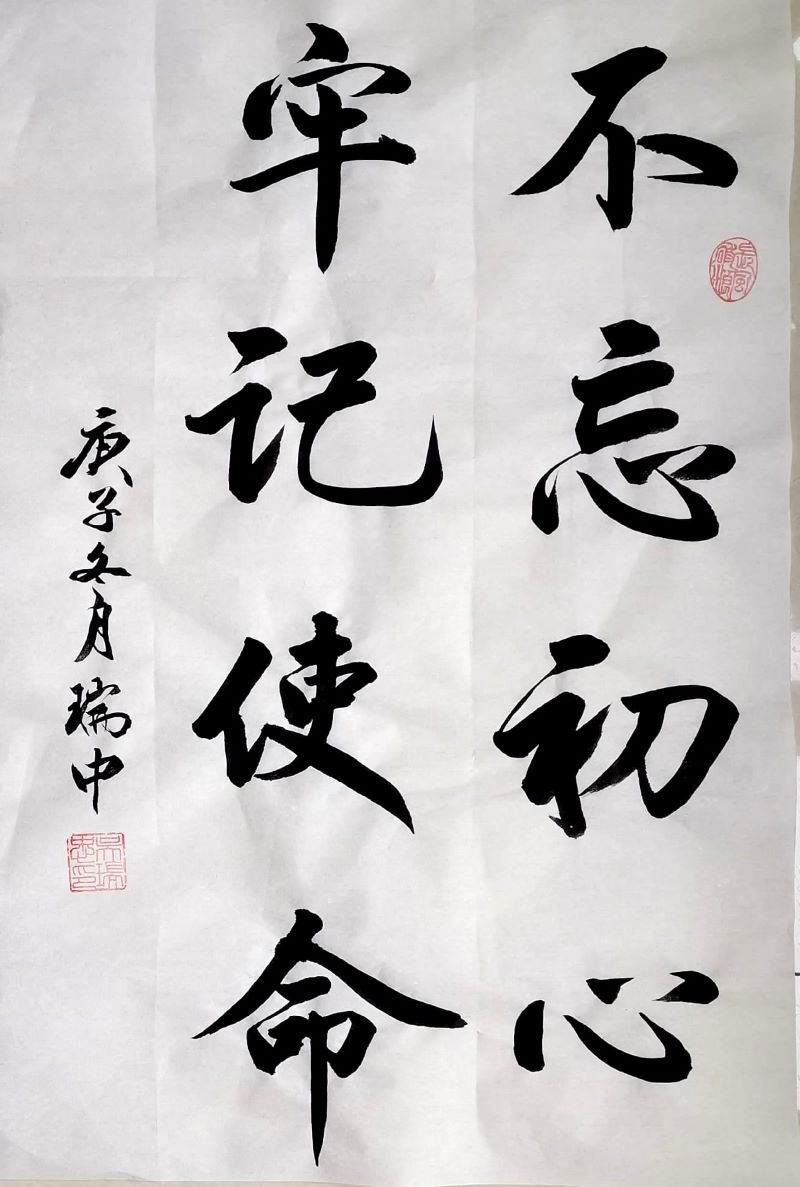 不忘初心
牢记使命
庚子冬月瑞中